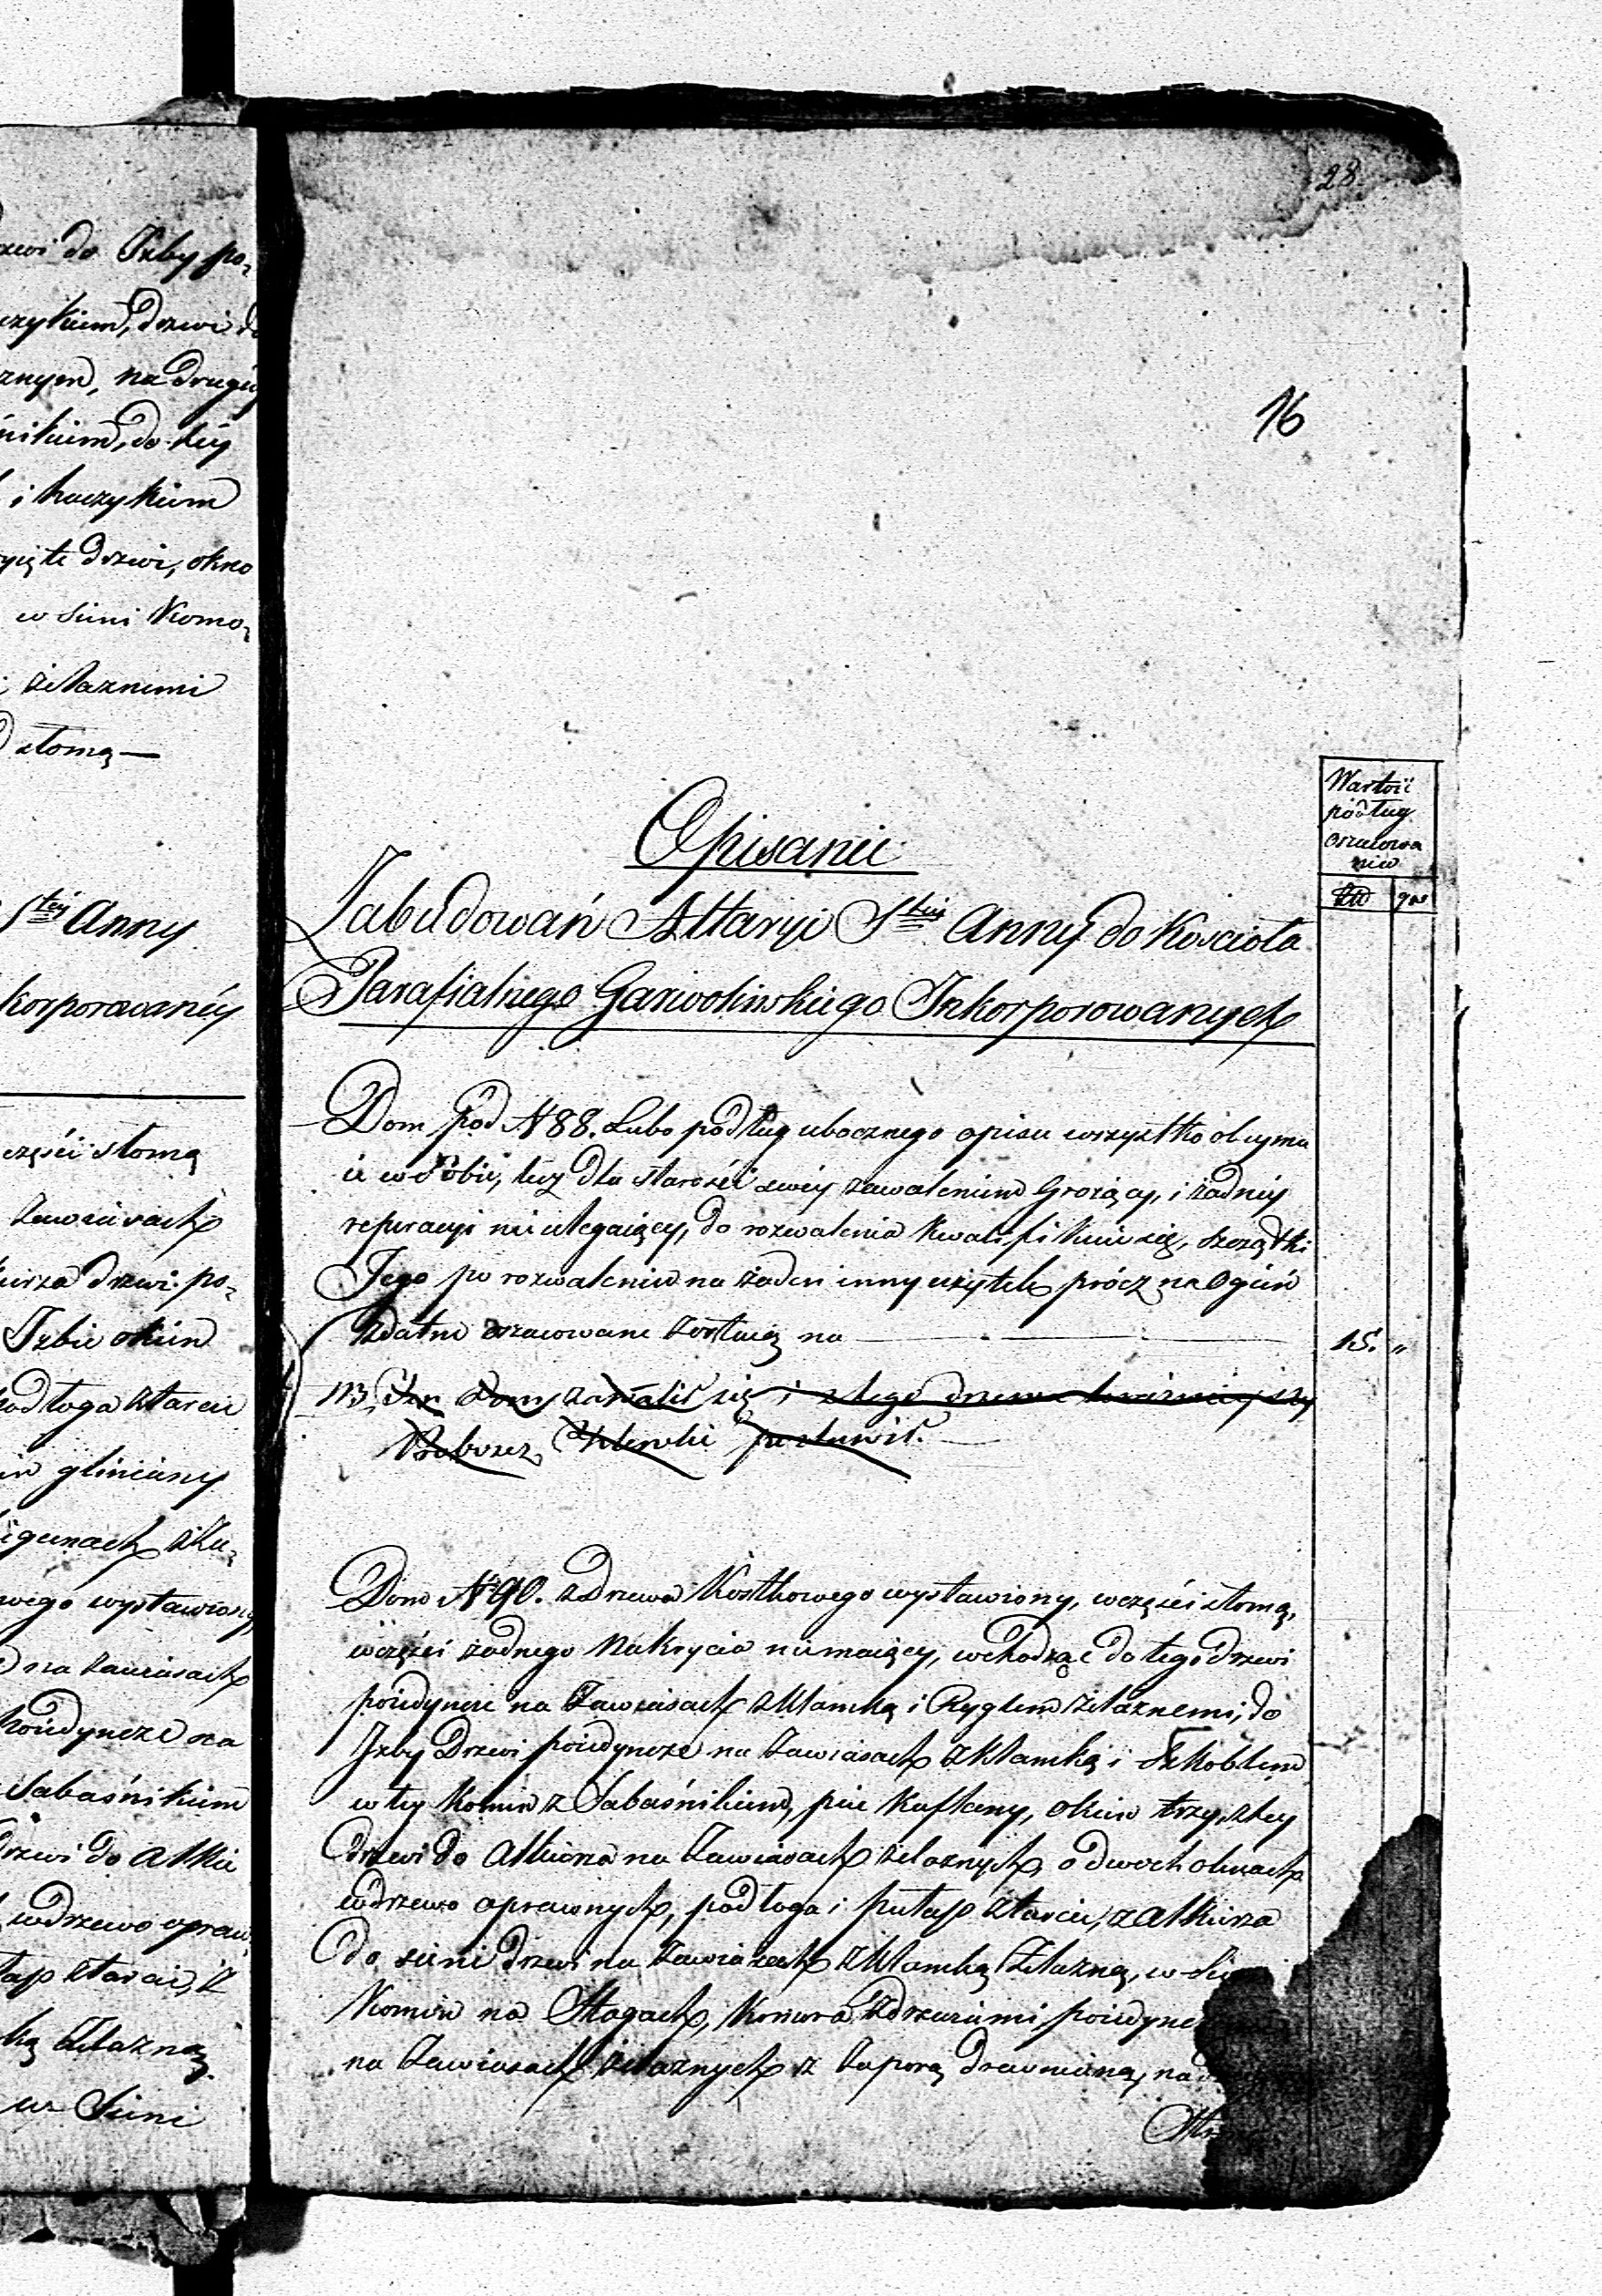 zwi do Izby po-
czykiem, drzwi do
znym, na drugiey
nikiem, do tey
i haczykiem
te drzwi, okno
w Sieni Komo-
żelaznemi
słomą —
Stey Anny
korporowaney
części słomą
zawiasach
kierza drzwi po-
Izbie okien
podłoga z tarcic
gliniany
igunach z Klu-
wego wystawiony
na zawiasach
poiedyncze na
Sabaśnikiem
drzwi do Alkie
w drzewo opraw
z tarcic, z
ką Żelazną
w Sieni
28
16
Wartość
podług
oszacowa
nia
Złł
gr
Opisanie
Zabudowań Altaryi Stey Anny do Kościoła
Parafialnego Garwolinskiego Inkorporowanych
Dom pod N 88. Lubo podług ubocznego opisu wszystko obeyma
ie w Sobie, lecz dla starości swey zawaleniem Grożący, i żadney
reparacyi nieulegaiący, do rozwalenia Kwalifikuie się, szczątki
Jego po rozwaleniu na żaden inny użytek prócz na Ogień
zdatne oszacowane zostaią na
15. "
NB Ten Dom zawalił się i z tego drzewa
Proboszcz postawił.
Dom N 90. z Drzewa Kostkowego wystawiony, w części słomą,
w części żadnego Nakrycia niemaiący, wchodząc do tego drzwi
poiedyncze na Zawiasach z Klamką i Ryglem żelaznemi, do
Izby Drzwi poiedyncze na Zawiasach z Klamką i Skoblem
w tey Komin z Sabaśnikiem, piec Kaflany, Okien trzy, z tey
drzwi do Alkierza na Zawiasach żelaznych, o dwoch oknach
w drzewo oprawnych, podłoga i pułap z tarcic, z Alkierza
do sieni drzwi na Zawiasach z Klamką Żelazną, w Sie
Komin na Stagach, Komora z drzwiami poiedyn
na Zawiasach żelaznych z Zaporą drewnianą, na